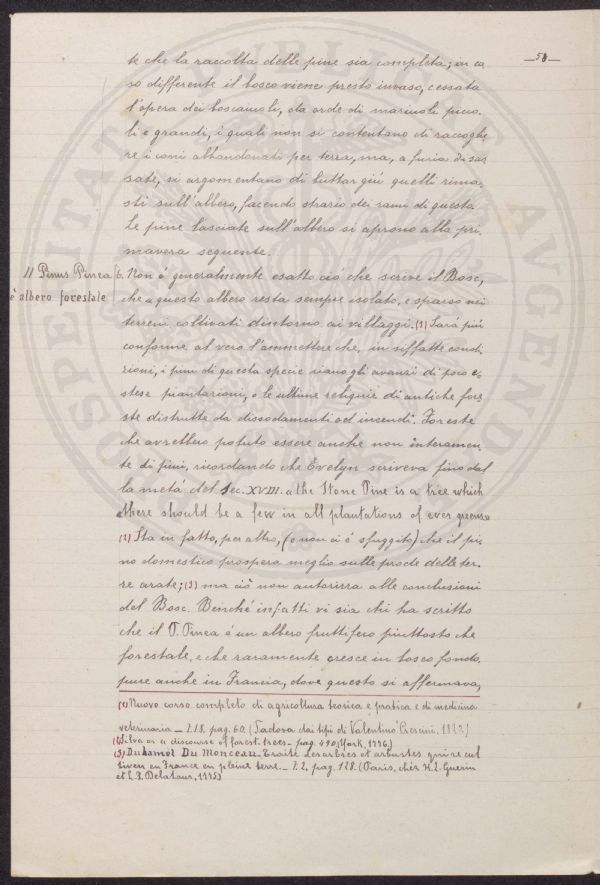 — 58 —
te che la raccolta delle pine sia completa; in ca
so differente il bosco viene presto invaso, cessata
l'opera dei boscaiuoli, da orde di marinoli picco-
li e grandi, i quali non si contentano di raccoglie
re i coni abbandonati per terra, ma, a furia di sas
sate, si argomentano di buttar giù quelli rima-
sti sull'albero, facendo strazio dei rami di questo
Le pine lasciate sull'albero si aprono alla pri-
mavera seguente.
Il Pinus Pinea
è albero forestale
6. Non è generalmente esatto ciò che scrive il Bosc,
che "questo albero resta sempre isolato, e sparso nei
terreni coltivati dintorno ai villaggi. (1) Sarà più
conforme al vero l'ammettere che, in siffatte condi-
zioni, i pini di questa specie siano gli avanzi di poco e-
stese piantazioni, o le ultime reliquie di antiche fore-
ste distrutte da dissodamenti od incendi. Foreste
che avrebbero potuto essere anche non interamen-
te di pini, ricordando che Evelyn scriveva fino dal
la metà del Sec. XVIII. "the Stone Pine is a tree which
there should be a few in all plantations of ever greens"
(2) Sta in fatto, per altro, (e non ci è sfuggito) che il pi-
no domestico prospera meglio sulle prode delle ter-
re arate; (3) ma ciò non autorizza alle conclusioni
del Bosc. Benché infatti vi sia chi ha scritto
che il P. Pinea è un albero fruttifero piuttosto che
forestale, e che raramente cresce in bosco fondo,
pure anche in Francia, dove questo si affermava,
(1) Nuovo corso completo di agricoltura teorica e pratica e di medicina
veterinaria — T. 18. pag. 60. (Padova dai tipi di Valentino Crescini, 1822)
(2) Silva or a discourse of forest-trees — pag. 490 (York, 1776.)
(3) Duhamel Du Monceau — Traité des arbres et arbustes qui se cul
tivent en France en pleine terre — T. 2, pag. 128. (Paris, chéz H. L. Guerin
et L. F. Delatour, 1755)
OSPEVITAT PVBLICAE AVGENDAE